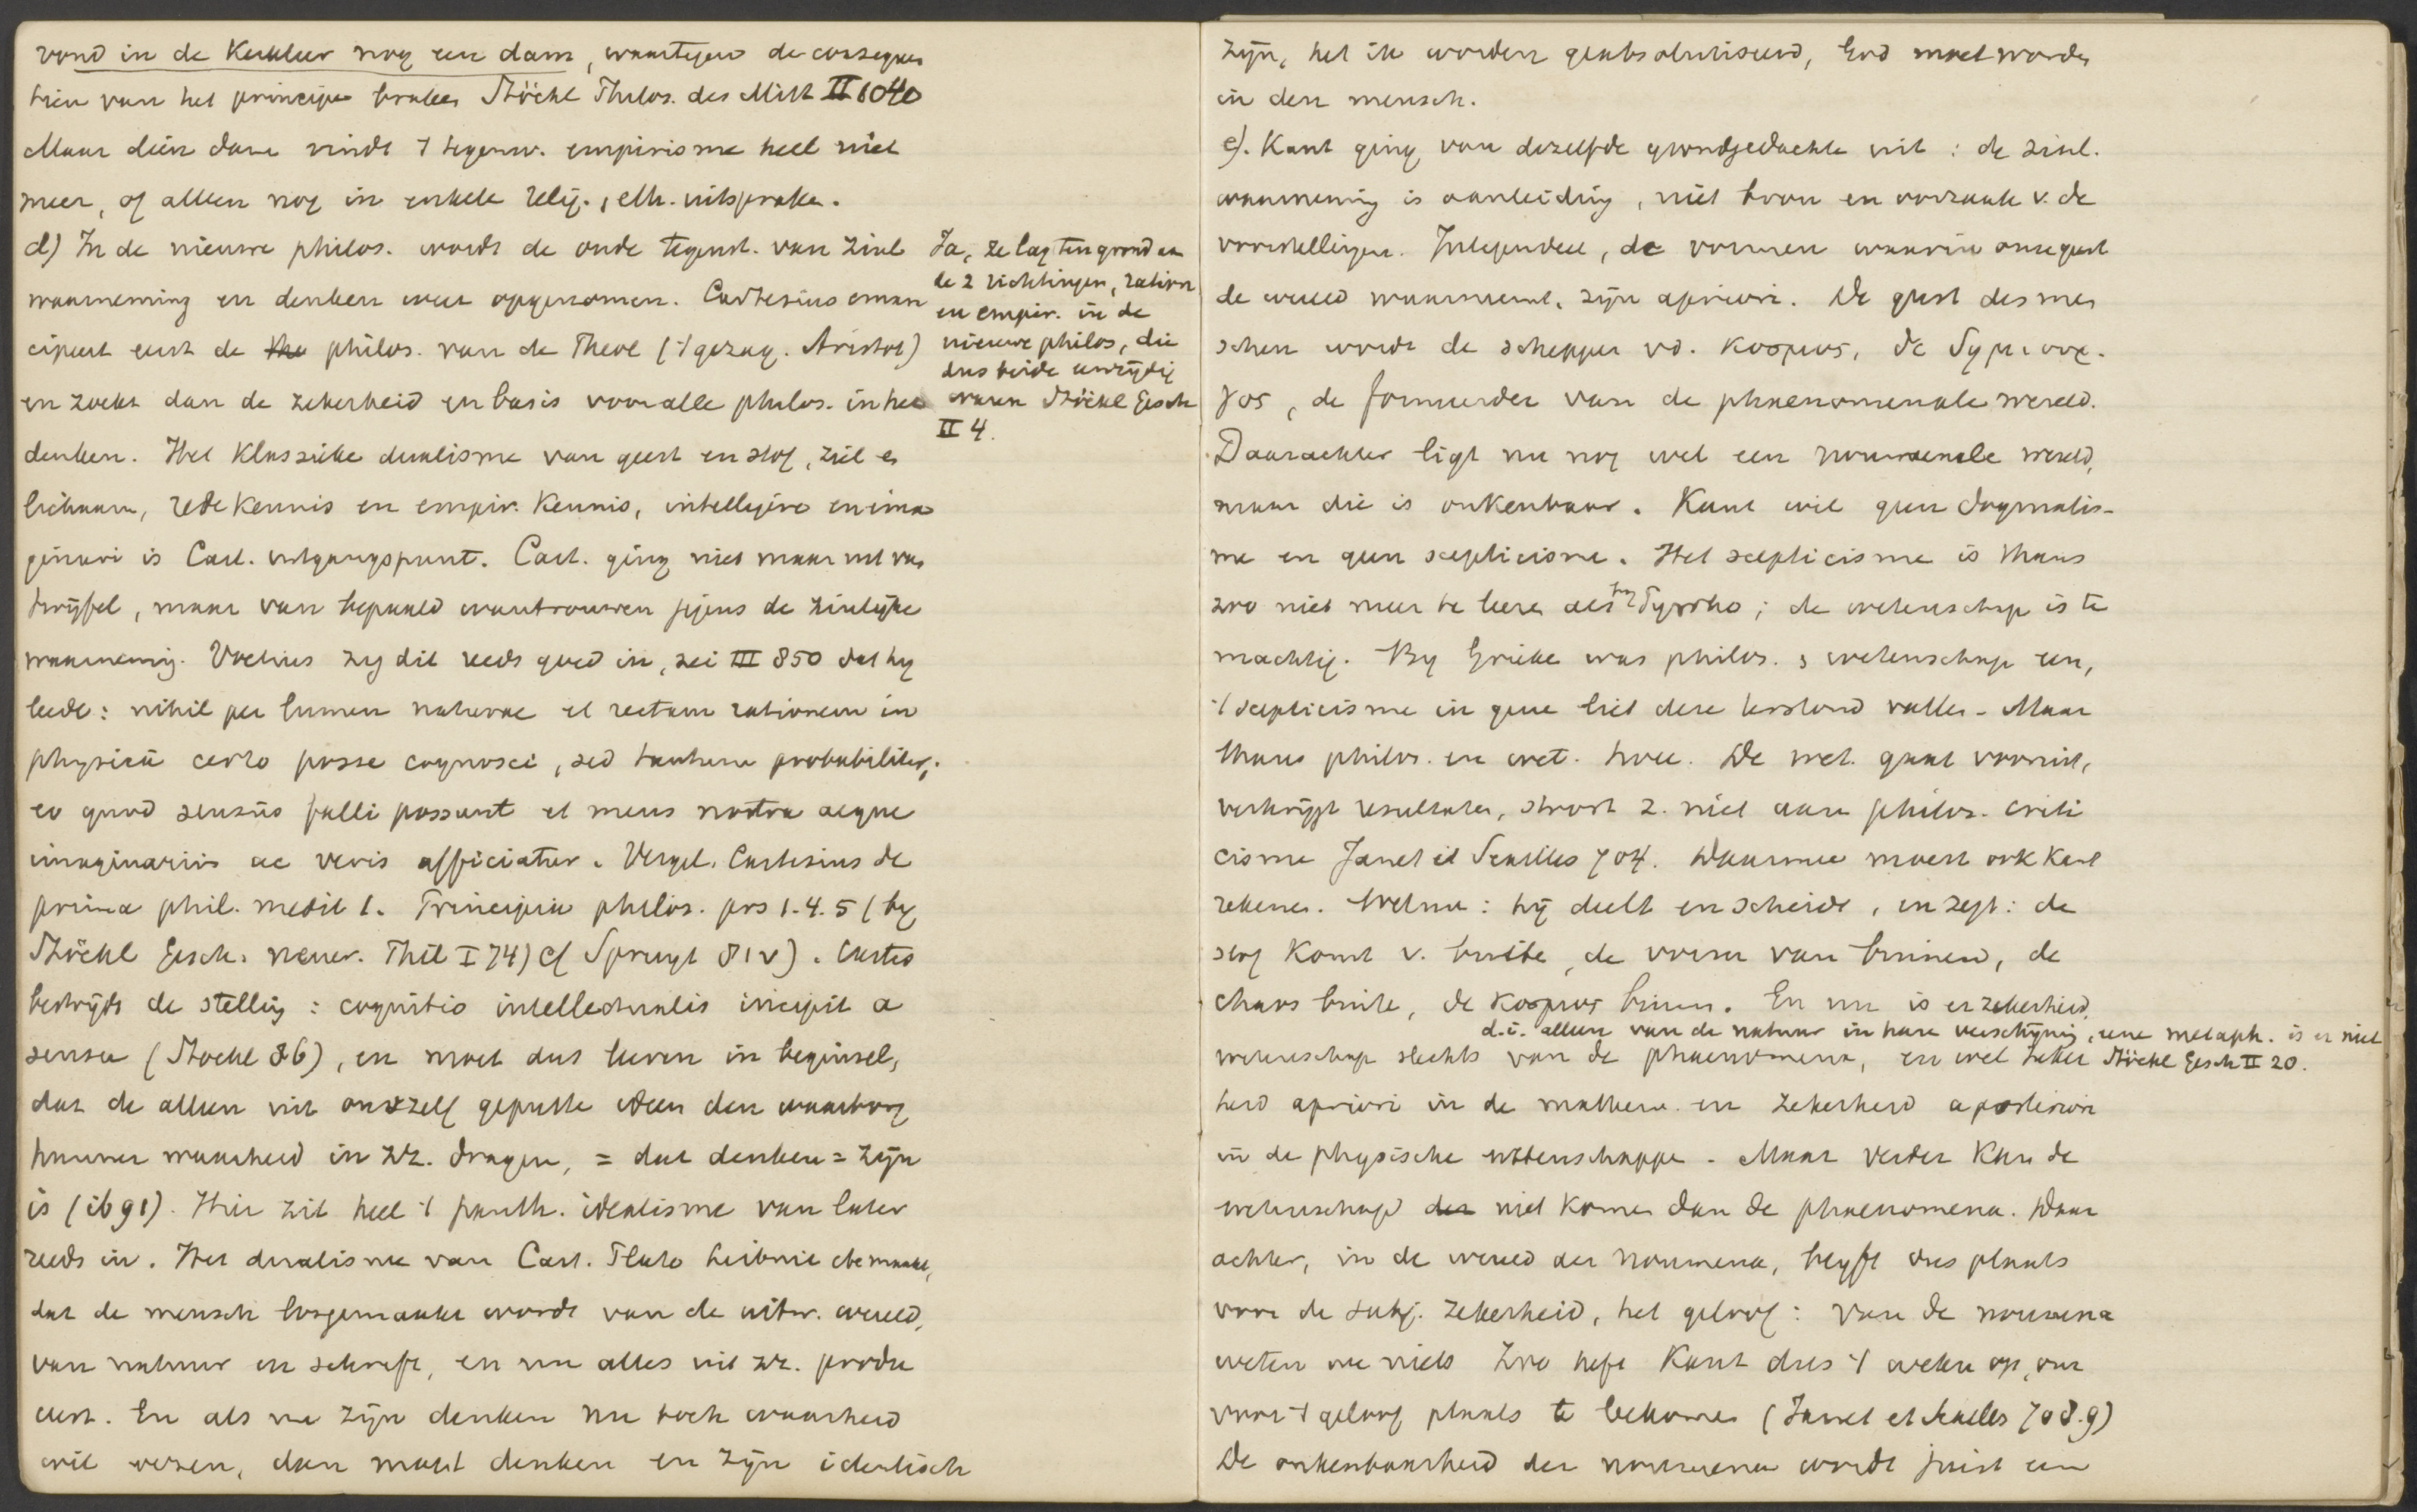 vond in de Kerkleer nog een dam, waartegen de consequen
tien van het principe braken Stöckl Philos. des Mitt II 1040
Maar dien dam vindt 't tegenw. empirisme heel niet
meer, of alleen nog in enkele relig., eth. uitspraken.
d) In de nieuwe philos. wordt de oude tegenst. van zinl
waarneming en denken weer opgenomen. Cartesius eman
cipeert eerst de philos. van de Theol ('t gezag. Aristot)
en zoekt dan de zekerheid en basis voor alle philos. in het
denken. Het Klassieke dualisme van geest en stof, ziel en
lichaam, rede kennis en empir. Kennis, intelligere en ima
ginari is Cart. uitgangspunt. Cart. ging niet maar uit van
twijfel, maar van bepaald wantrouwen jegens de zinlijke
waarneming. Voetius zag dit reeds goed in, zei III 850 dat hij
leerde: nihil per lumen naturae et rectam rationem in
physicis certo posse cognosci, sed tantum probabiliter,
eo quod sensus falli possunt et mens nostra aeque
imaginariis ac veris afficiatur. Vergel. Cartesius de
prima phil. medit 1. Principia philos. prs 1. 4. 5 (bij
Stöckl Gesch. neuer. Phil I 74) cf Spruyt 81v). Cartes
bestrijdt de stelling: cognitio intellectualis incipit a
sensu (Stöckl 86), en moet dus leeren in beginsel,
dat de alleen uit onszelf geputte ideen den waarborg
hunner waarheid in zich dragen, = dat denken = zijn
is (ib 91). Hier zit heel 't panth. idealisme van later
reeds in. Het dualisme van Cart. Plato Leibniz etc maakt,
dat de mensch losgemaakt wordt van de uitw. wereld,
van natuur en schrift, en nu alles uit zich produ
ceert. En als nu zijn denken nu toch waarheid
wil wezen, dan moet denken en zijn identisch
Ja, ze lag ten grond aan
de 2 richtingen, ration
en empir. in de
nieuwe philos, die
dus beide eenzijdig
waren Stöckl Gesch
II 4.
zijn, het ik worden geabsoluteerd, God moet worden
in den mensch.
e). Kant ging van dezelfde grondgedachte uit: de zinl.
waarneming is aanleiding, niet bron en oorzaak v. de
voorstellingen. Integendeel, de vormen waarin onze geest
de wereld waarneemt, zijn apriori. De geest des men
schen wordt de schepper vd. κοσμος, de δημιουρ-
γος, de formeerder van de phaenomenale wereld.
Daarachter ligt nu nog wel een noumenale wereld,
maar die is onkenbaar. Kant wil geen dogmatis-
me en geen scepticisme. Het scepticisme is thans
zoo niet meer te leeren als bij Pyrrho; de wetenschap is te
machtig. Bij Grieken was philos. & wetenschap een,
't scepticisme in gene liet deze terstond vallen. Maar
thans philos. en wet. twee. De wet. gaat vooruit,
verkrijgt resultaten, stoort z. niet aan philos. criti
cisme Janet et Séailles 704. Daarmee moest ook Kant
rekenen. Welnu: hij deelt en scheidt, en zegt: de
stof komt v. buiten, de vorm van binnen, de
chaos buiten, de κοσμος binnen. En nu is er zekerheid,
d.i. alleen van de natuur in hare verschijning, eene metaph. is er niet
wetenschap slechts van de phaenomena, en wel zeker Stöckl Gesch II 20.
heid apriori in de mathem. en zekerheid aposteriori
in de physische wetenschappen. Maar verder kan de
wetenschap niet komen dan de phaenomena. Daar
achter, in de wereld der noumena, blijft dus plaats
voor de subj. zekerheid, het geloof: van de noumena
weten we niets Zoo heft Kant dus 't weten op, om
voor 't geloof plaats te bekomen (Janet et Séailles 708.9)
De onkenbaarheid der noumena wordt juist een